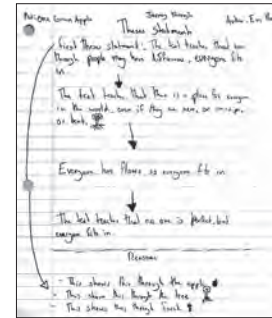 Thesis Statements
First Thesis Statement: The text teaches that even
though people may have differences, everyone fits
in.
The text teaches that there is a place for everyone
in the world, even if they are new, or
or bent.
Everyone has flaws, so everyone fits in.
The text teaches that no one is perfect, but
everyone fits in.
Reasons
- This shows this through the apple
- This shows this through the tree
- This shows this through